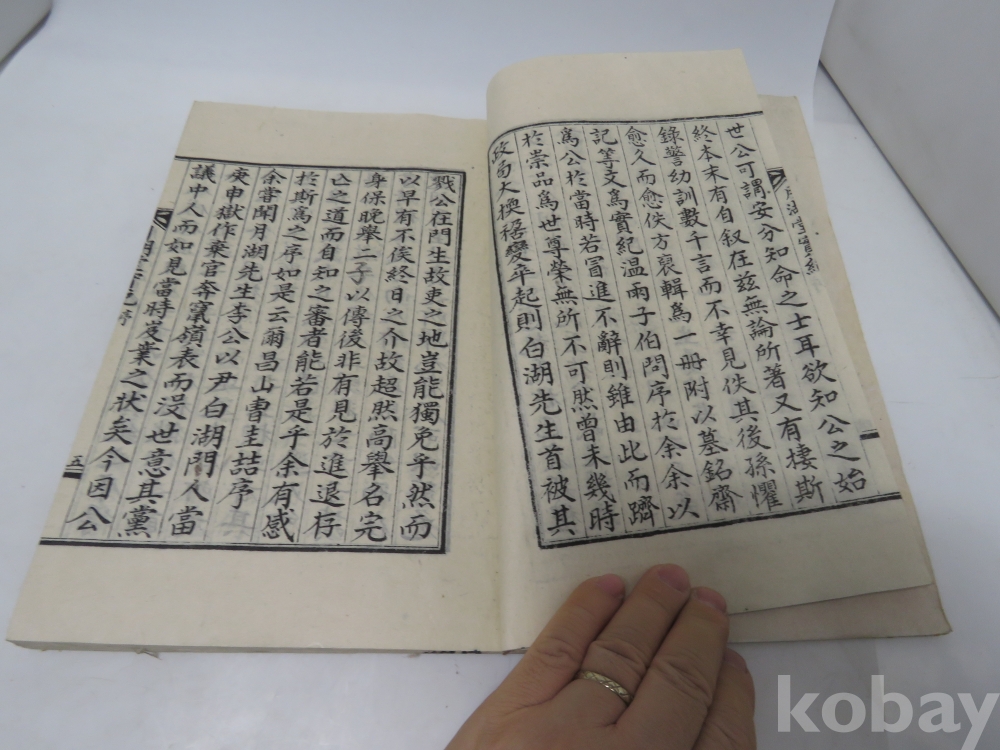 世公可謂安分知命之士耳欲知公之始
終本末有自叙在玆無論所著又有棲斯
錄警幼訓數千言而不幸見佚其後孫懼
愈久而愈佚方裒輯爲一冊附以墓銘齋
記等文爲實紀温雨子伯問序於余余以
爲公於當時若冒進不辭則雖由比而躋
於崇品爲世尊榮無所不可然曾未幾時
政局大換禍變卒起則白湖先生首被其
戮公在門生故吏之地豈能獨免乎然而
以早有不俟終日之介故超然高擧名完
身保晚擧二子以傳後非有見於進退存
亡之道而自知之審者能若是乎余有感
於斯爲之序如是云爾昌山曺圭喆序
余嘗聞月湖先生李公以尹白湖門人當
庚申獄作棄官奔竄嶺表而沒世意其黨
議中人而如見當時岌業之狀矣今因公
月湖堂實紀
序
五
kobay